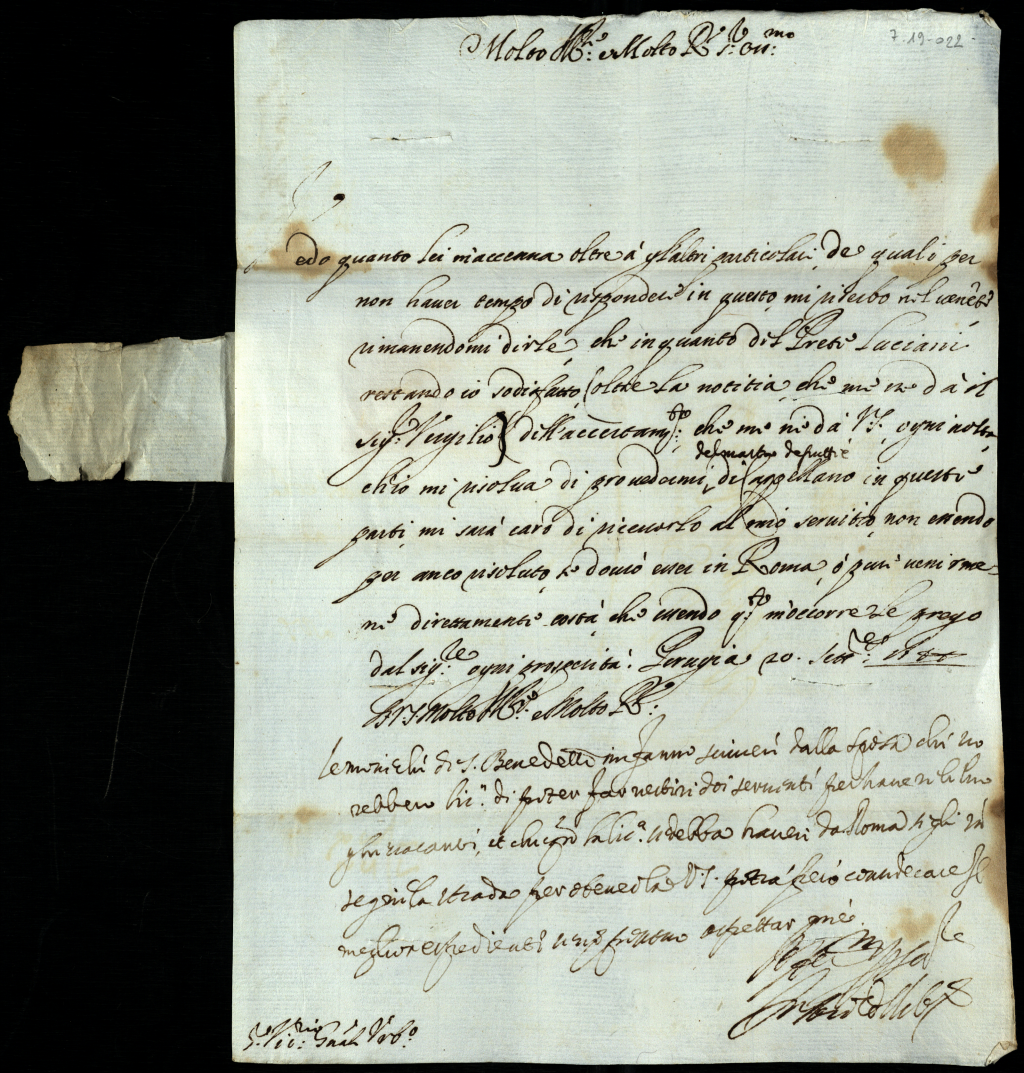 7-19-022
Molto Ill.re e Molto R.do s.re oss.mo
Vedo quanto lei m'accenna oltre à gl'altri particolari, de quali per
non haver tempo di rispondere in questo, mi riserbo nel venente
rimanendomi dirle, che in quanto del Prete Luciani
restando io sodisfatto (oltre la notitia che me ne dà il
sig.r Vergilio) dell'accertam.to che me ne dà V.S. ogni volta
del maestro de putti e
ch'io mi risolva di provedermi di Cappellano in queste
parti mi sarà caro di riceverlo al mio servitio, non essendo
per anco risoluto, se dovrò esser in Roma, ò pure venirme-
ne direttamente costà, che essendo q.to m'occorre le prego
dal sig.re ogni prosperità. Perugia 20. sett.re
Di V.S. Molto Ill.re e Molto R.da
Le moniche di S. Benedetto mi fanno scrivere dalla che vo
rebbero lic.a di poter far vestire doi serventi per havere li luo
ghi vacanti, et la lic.a debba havere da Roma
segni la strada per ottenerla V.S. potrà però
meglio espediente aspettar
S.r Vic.rio Gnāle Urb.o